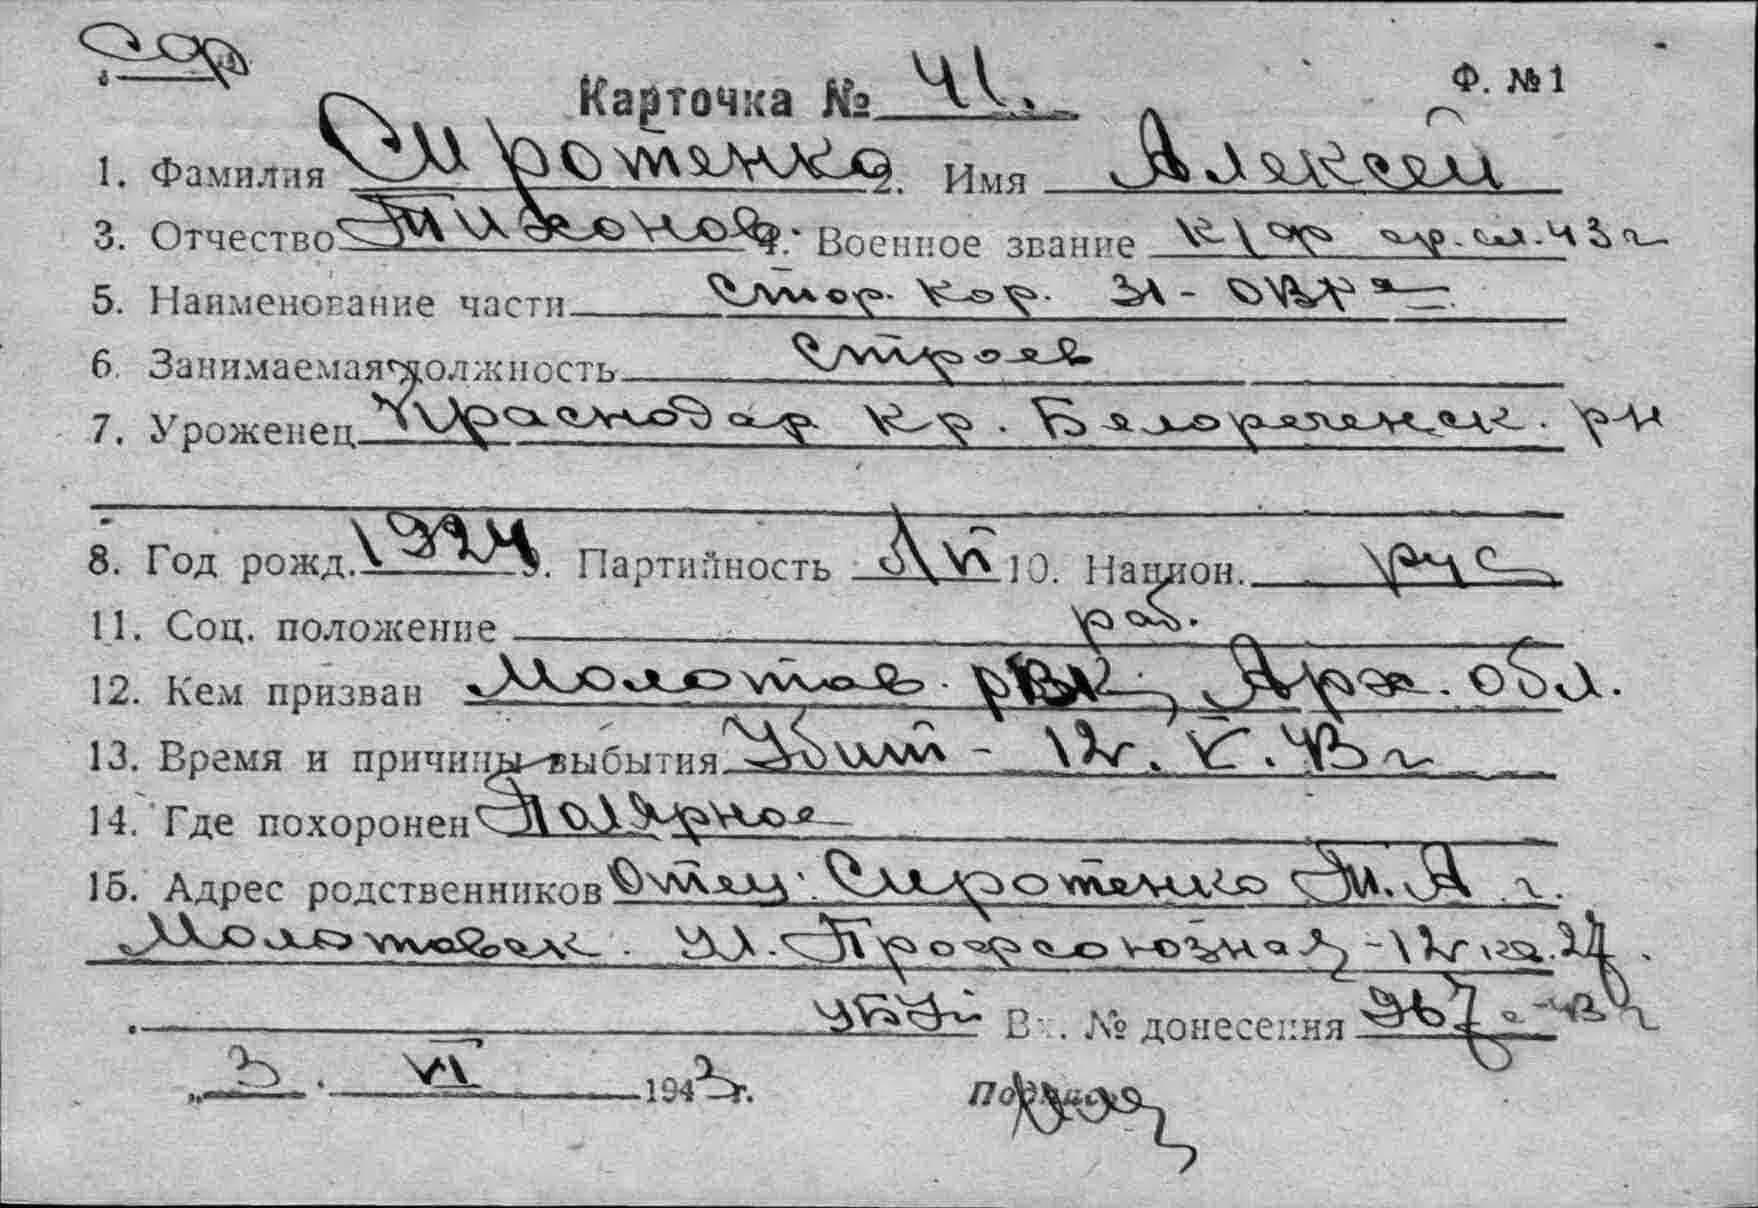 Карточка № 41. Ф. №1
1. Фамилия Сиротенко 2. Имя Алексей
3. Отчество Тихонов. 4. Военное звание к/ф ср. сл. 43 г
5. Наименование части Стор. кор. ОВРа
6. Занимаемая должность строев
7. Уроженец Краснодар кр. Белореченск. рн
8. Год рожд. 1924 9. Партийность 10. Национ. рус
11. Соц. положение раб.
12. Кем призван Молотов. РВК, Арх. обл.
13. Время и причины выбытия Убит - 12. V. 43 г
14. Где похоронен Полярное
15. Адрес родственников Отец: Сиротенко Т. А г.
Молотовск. ул. Профсоюзная - 12 кв. 27.
Вх. № донесения 967с - 43 г
„ 3 . VI 1943 г.
Подпись